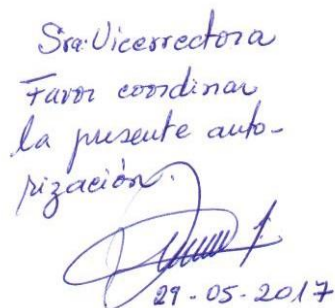 Sra. Vicerrectora
Favor coordinar
la presente auto-
rización.
29-05-2017